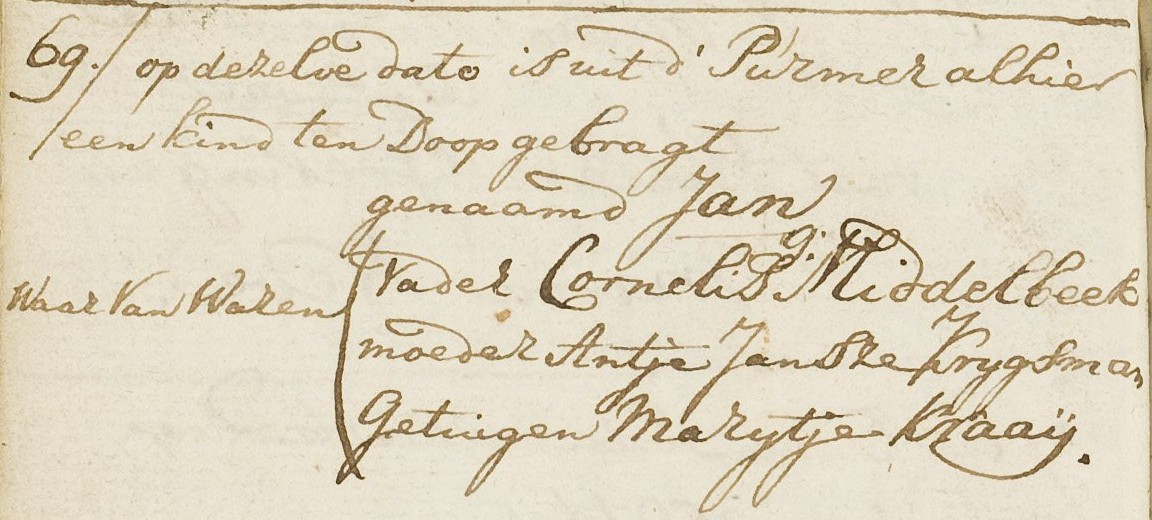 69. op dezelve dato is uit d' Purmer alhier
een kind ten Doop gebragt
genaamd Jan
Waar Van Waren
Vader Cornelis g: Middelbeek
moeder Antje Jansze Krygsman
Getuigen Marytje Kraaÿ.